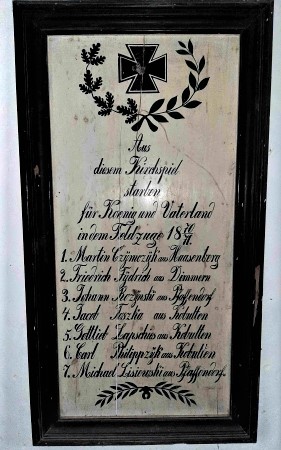 Aus
diesem Kirchspiel
starben
für Koenig und Vaterland
in dem Feldzuge 18 70/71.
1. Martin Czymczik aus Haasenberg
2. Friedrich Fydrich aus Dimmern
3. Johann Rozynski aus Pfaffendorf
4. Jacob Toszka aus Kobulten
5. Gottlieb Lapschies aus Kobulten
6. Carl Philippzik aus Kobulten
7. Michael Lisiewski aus Pfaffendorf.